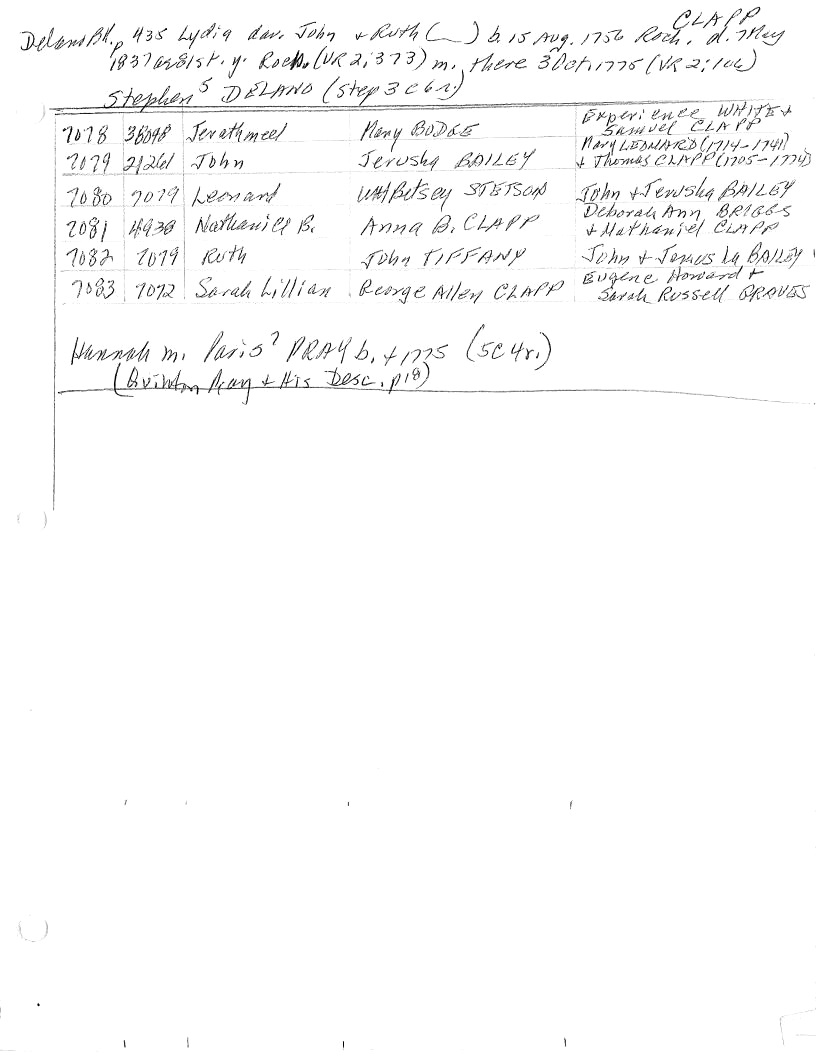 CLAPP
Delano Bk. p 435 Lydia dau. John + Ruth (__) b. 15 Aug. 1756 Roch. d. 7 May
1837 ae 81st. y. Roch. (VR 2:373) m. there 3 Oct. 1775 (VR 2:
Stephen⁵ DELANO (Step 3 c 6 r.)
7078 Jerathmeel Mary BODGE Experience WHITE + Samuel CLAPP
7079 21261 John Jerusha BAILEY Mary LEONARD (1714-1741) + Thomas CLAPP (1705-1774)
7080 7079 Leonard Betsey STETSON John + Jerusha BAILEY
7081 4938 Nathaniel B. Anna B. CLAPP Deborah Ann BRIGGS + Nathaniel CLAPP
7082 7079 Ruth John TIFFANY John + Jerusha BAILEY
7083 7072 Sarah Lillian George Allen CLAPP Eugene Howard + Sarah Russell GRAVES
Hannah m. Paris⁷ PRAY b. + 1775 (5C4r.)
(Quinton Pray + His Desc. p18)